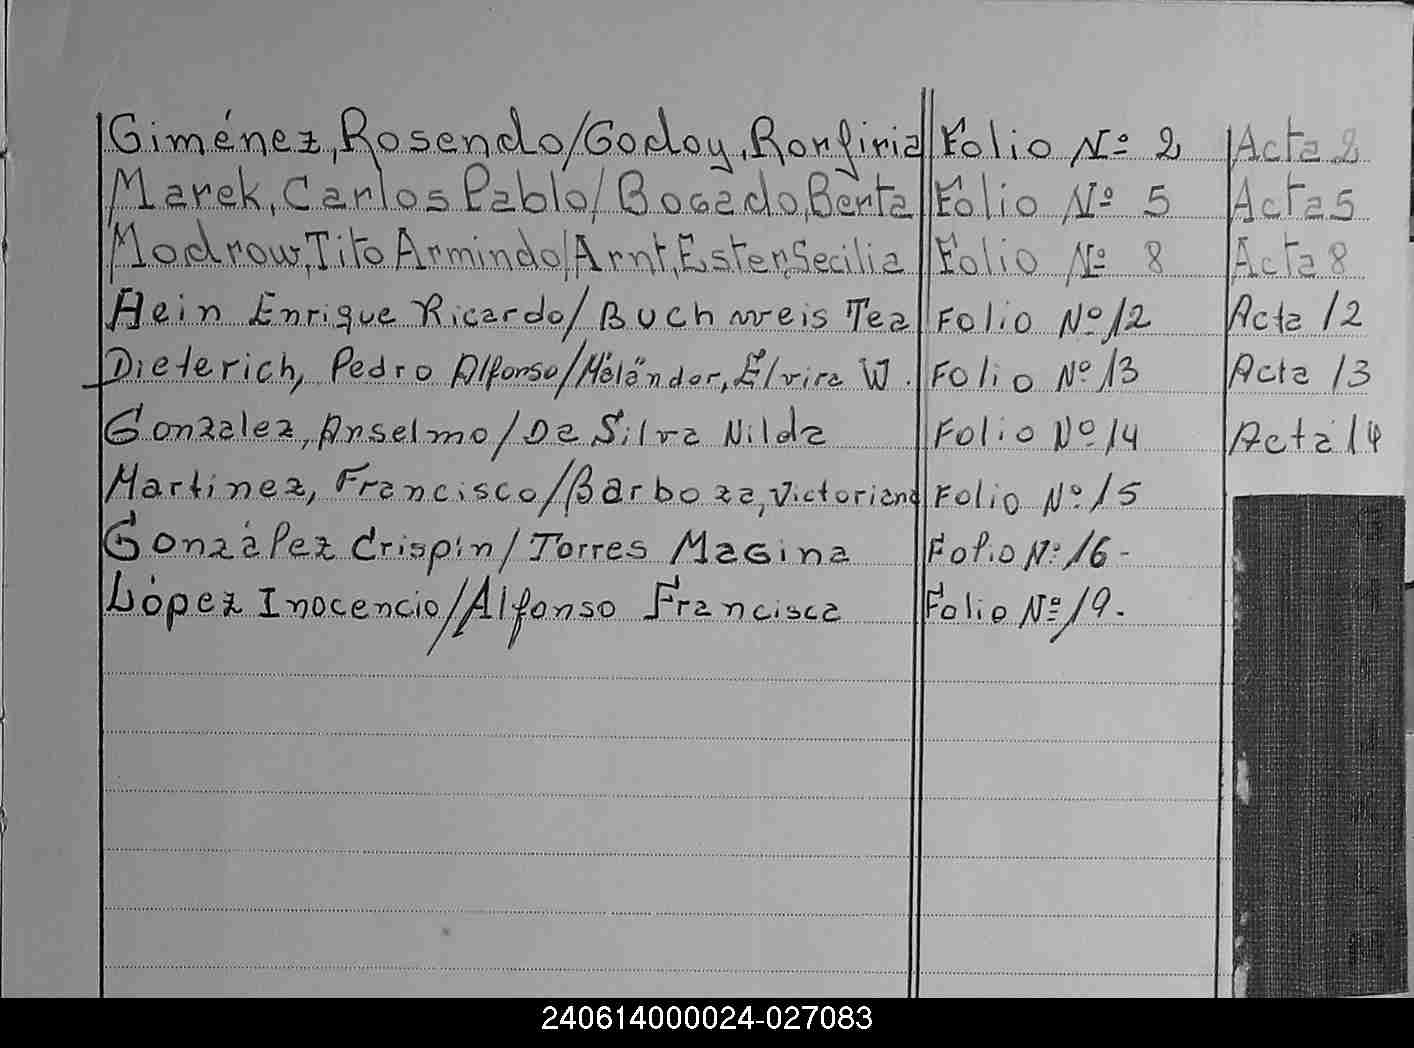 Giménez, Rosendo/Godoy, Ronfiria Folio Nº 2 Acta 2
Marek, Carlos Pablo/Bogado, Berta Folio Nº 5 Acta 5
Modrow, Tito Armindo/Arnt, Ester, Secilia Folio Nº 8 Acta 8
Hein Enrique Ricardo/Buchweis Tea Folio Nº 12 Acta 12
Dieterich, Pedro Alfonso/ Elvira W. Folio Nº 13 Acta 13
Gonzalez, Anselmo/Da Silva Nilda Folio Nº 14 Acta 14
Martinez, Francisco/Barboza, Victoriana Folio Nº 15
González Crispin/Torres Magina Folio Nº 16-
López Inocencio/Alfonso Francisca Folio Nº 19.
240614000024-027083